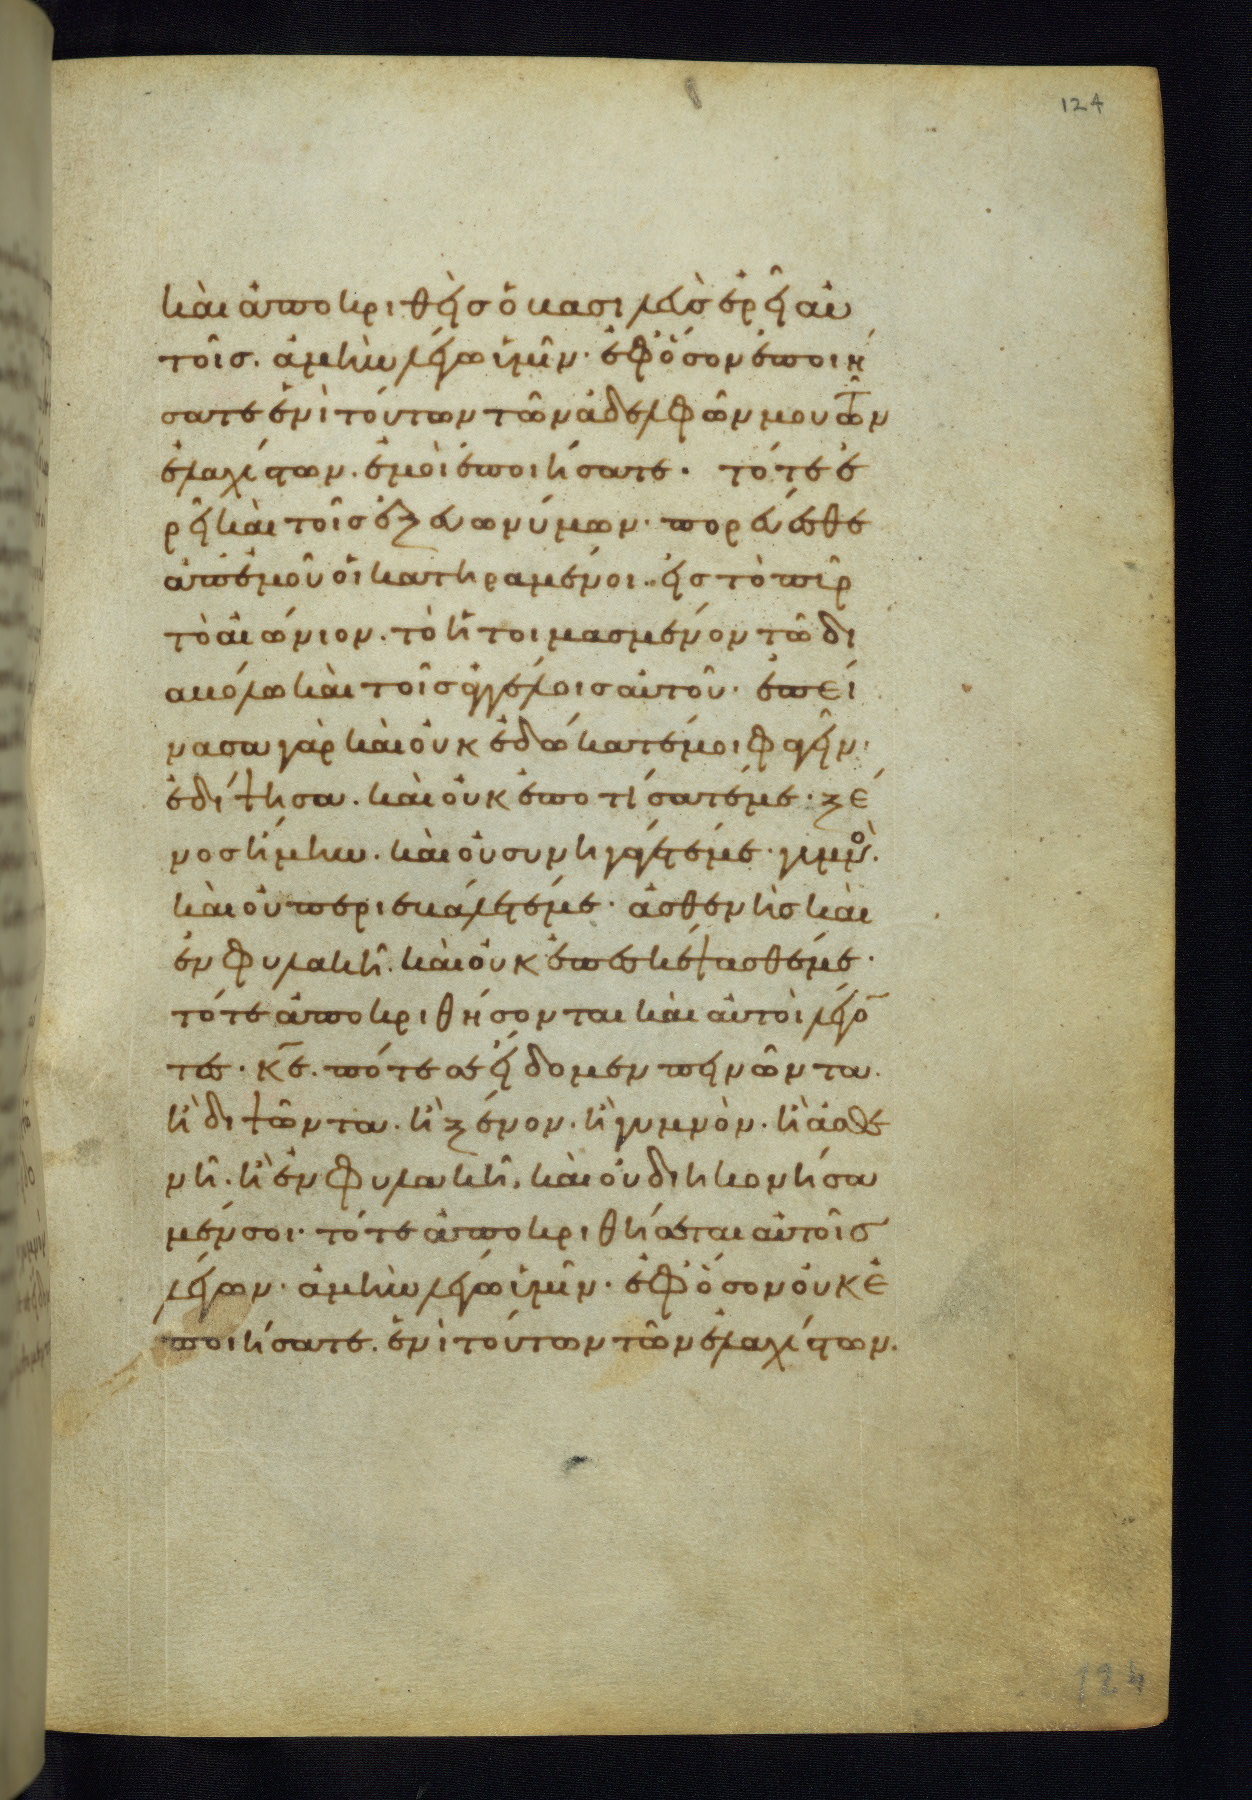 124
καὶ ἀποκριθεὶς ὁ βασιλεὺς ἐρεῖ αὐ
τοῖς. ἀμὴν λέγω ὑμῖν· ἐφ' ὅσον ἐποιή
σατε ἑνὶ τούτων τῶν ἀδελφῶν μου τῶν
ἐλαχίστων. ἐμοὶ ἐποιήσατε. τότε ἐ
ρεῖ καὶ τοῖς ἐξ εὐωνύμων· πορεύεσθε
ἀπ' ἐμοῦ οἱ κατηραμένοι. εἰς τὸ πῦρ
τὸ αἰώνιον. τὸ ἡτοιμασμένον τῶ δι
αβόλω καὶ τοῖς ἀγγέλοις αὐτοῦ. ἐπεί
νασα γὰρ καὶ οὐκ ἐδώκατέ μοι φαγεῖν·
ἐδίψησα. καὶ οὐκ ἐποτίσατέ με· ξέ
νος ἤμην. καὶ οὐ συνηγάγετέ με· γυμνὸς.
καὶ οὐ περιεβάλετέ με· ἀσθενὴς καὶ
ἐν φυλακῆ. καὶ οὐκ ἐπεσκέψασθέ με·
τότε ἀποκριθήσονται καὶ αὐτοὶ λέγο̅
τες. κ̅ε. πότε σὲ εἴδομεν πεινῶντα.
ἢ διψῶντα. ἢ ξένον. ἢ γυμνὸν. ἢ ἀσθε
νῆ. ἢ ἐν φυλακῆ. καὶ οὐ διηκονήσα
μέν σοι· τότε ἀποκριθήσεται αὐτοῖς
λέγων· ἀμὴν λέγω ὑμῖν· ἐφ' ὅσον οὐκ ἐ
ποιήσατε. ἑνὶ τούτων τῶν ἐλαχίστων.
124